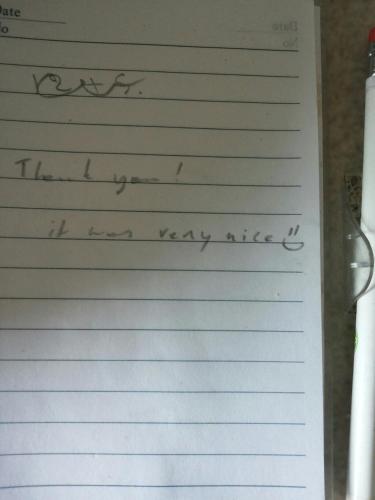 Date
No
Date
No
Thank you!
it was very nice